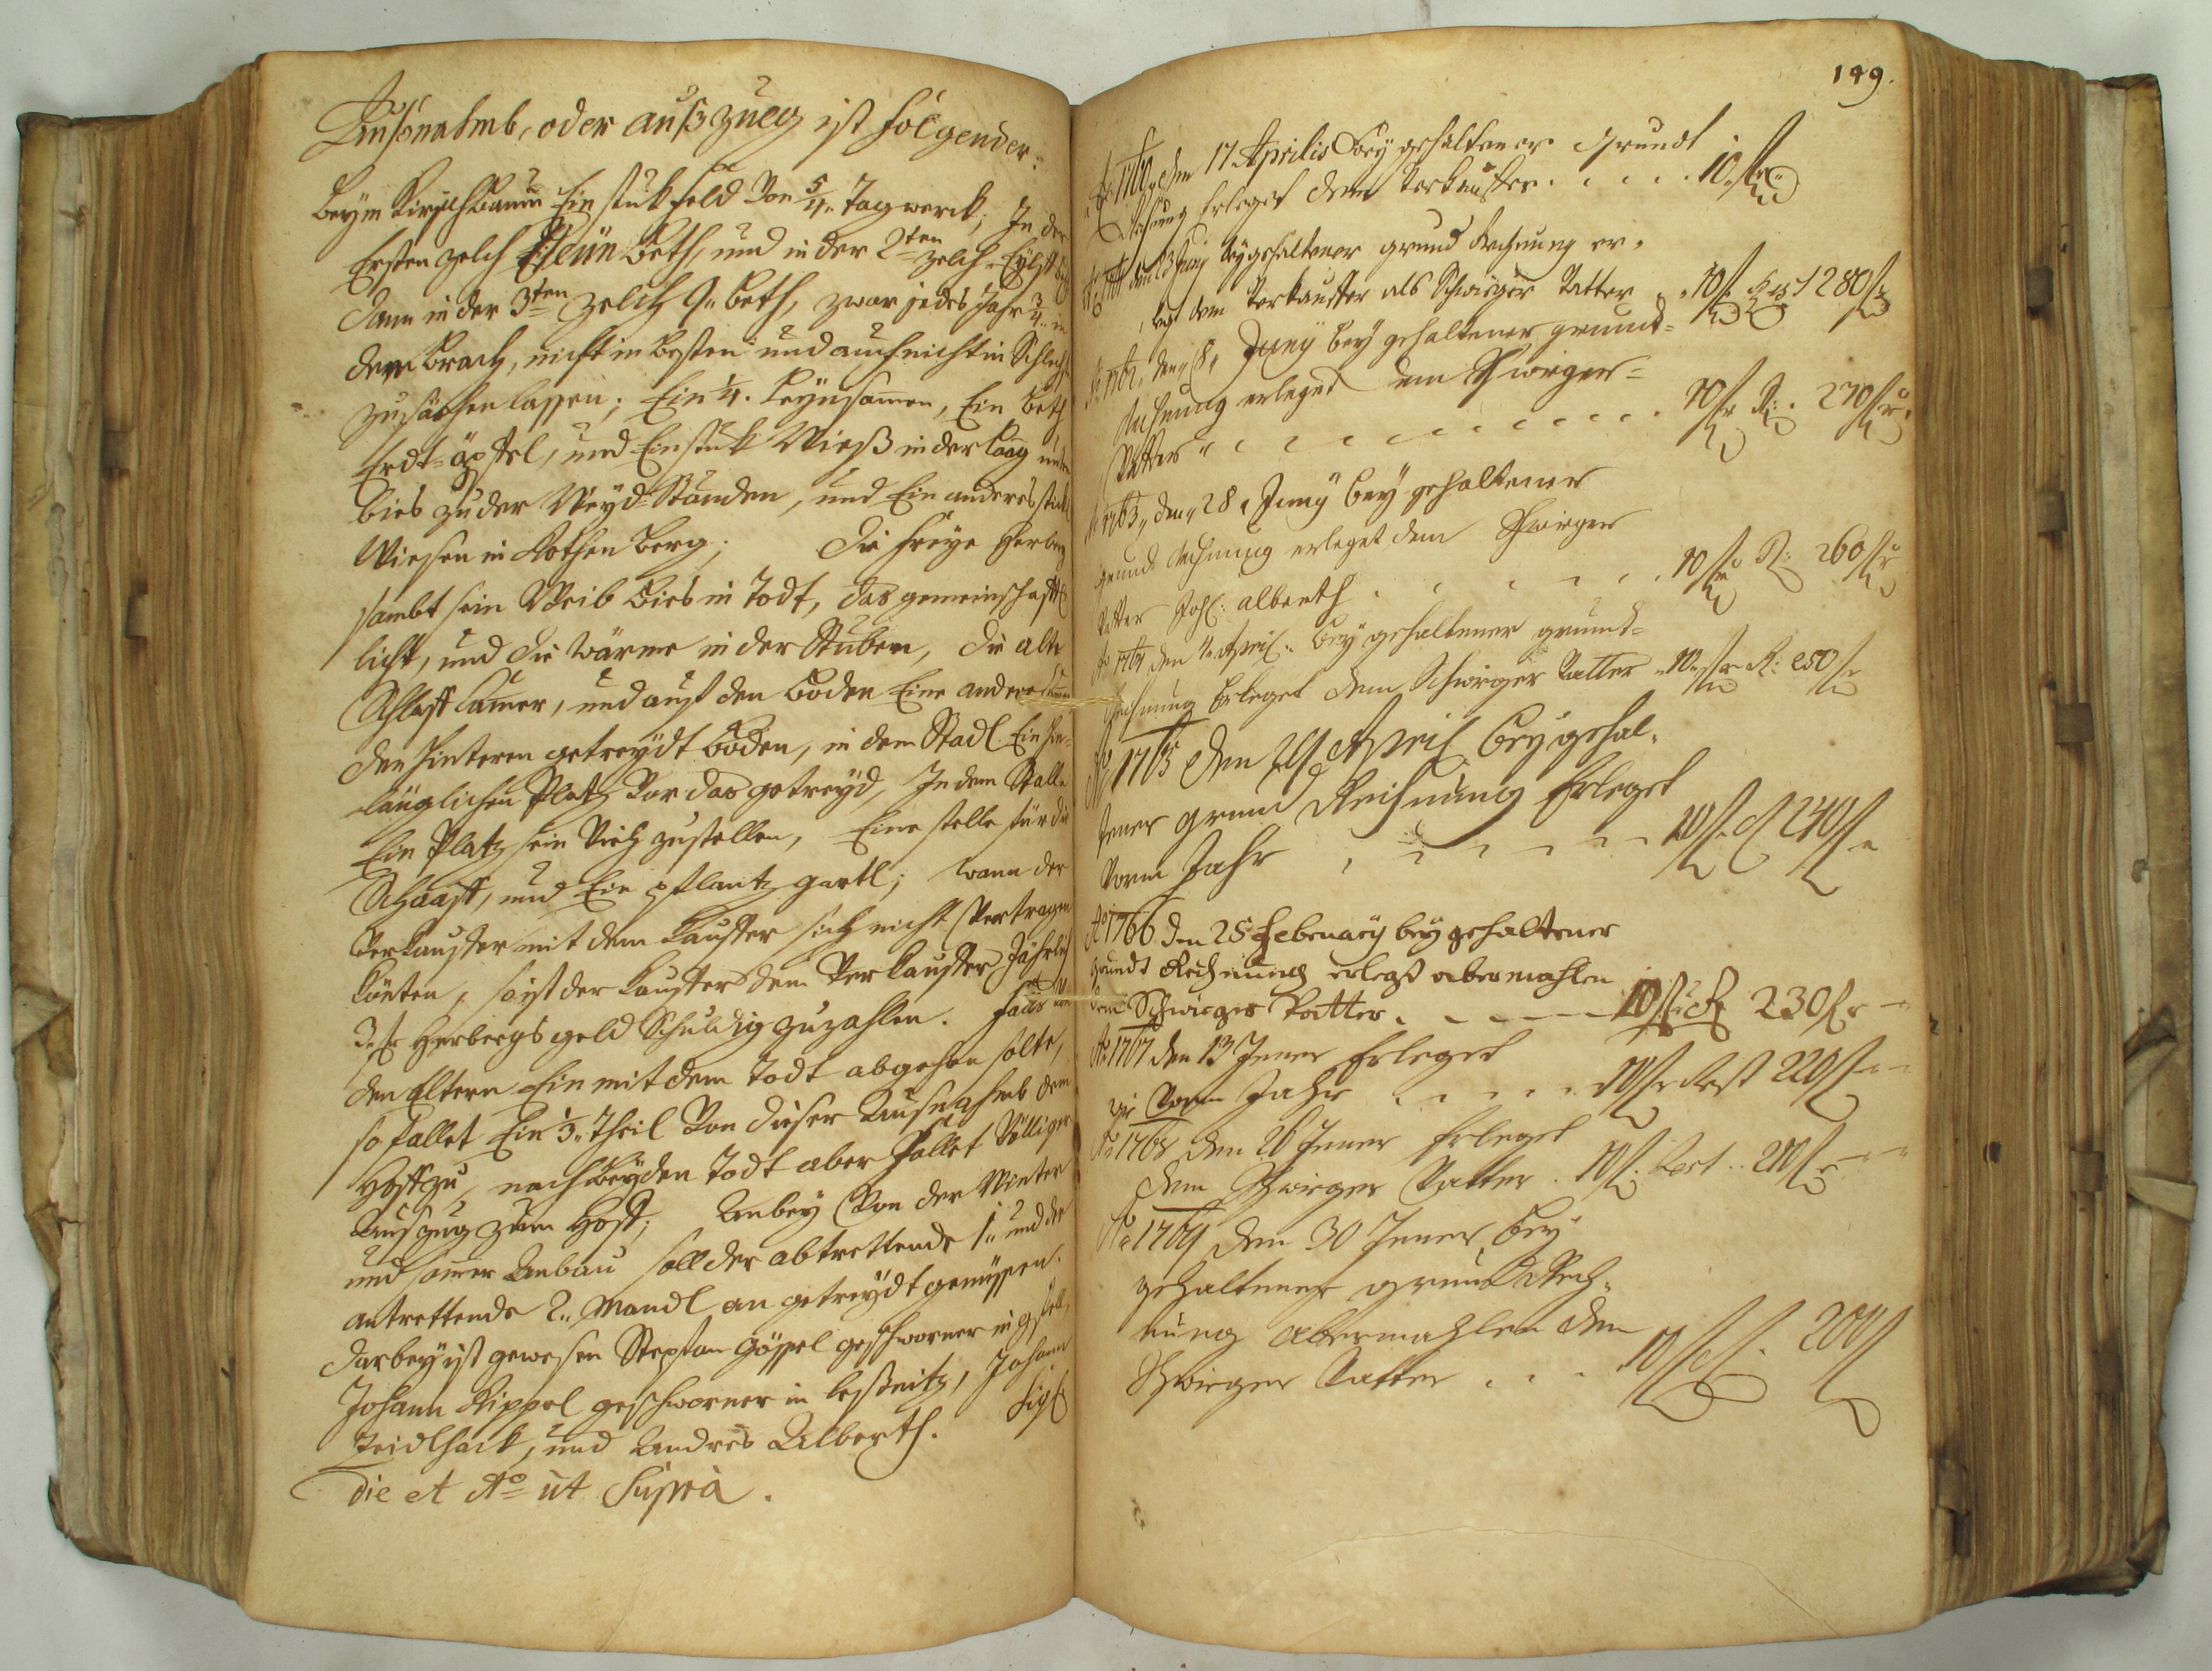 Außnahmb, oder außzueg ist folgender:
Beÿm Kirschbaum Ein stuk feld von 5/4. Tagwerck, In der
Ersten zelch Neün beth, und in der 2ten zelch Eÿlff beth
dann in der 3ten zelch 9. beth, zwar jedes Jahr 3/4. in
dem brach, nicht in besten und auch nicht in Schlech
zu säehen lassen; Ein 1/4. Leÿnsamen, Ein beth
Erdt-äpffel, und Ein stuk Wieß in der Laag unten
bies zu der Weÿd-Stauden, und Ein anderes stuckl
Wiesen in Rothen berg; die freÿe Herberg
sambt sein Weib bies in Todt, das gemeinschafftl
licht, und die Wärme in der Stuben, die alte
Schlaff Camer, und auf den boden Eine andere Camer
den hinteren getreÿdt boden, in dem Stadl Ein hin-
länglichen Platz vor das getreÿd, In dem Stalle
Ein Platz sein Vieh zustellen, Eine stelle für die
Schaaff, und Ein pflantz gartl; wann der
Verkauffer mit dem Kauffer sich nicht vertragen
könten, so ist der Kauffer dem Verkauffer Jährlich
3. fr Herbergs geld Schuldig zuzahlen. falls von
den Eltern Ein mit dem Todt abgehen solte,
so fallet Ein 1/3. theil von dieser Ausnahmb dem
Hoff zu, nach beÿden Todt aber fallet völliger
Auszug zum Hoff; Anbeÿ von der Winter
und somer Anbau soll der abtrettende 1. und der
antrettende 2. Mandl an getreÿdt genüssen.
darbeÿ ist gewesen Stephan Göppel geschworner in
Johann Rippel geschworner in Leßnitz, Johann
Zeidlhack, und Andres Alberth. Sigl
die et Ao ut Supra.
149.
Ao 1760 den 17. Aprilis beÿ gehaltener Grundt
Rechnung Erleget dem Verkauffer . . . . . 10. fr
Junÿ beÿgehaltener grund Rechnung er-
legt dem Verkauffer als Schwieger Vatter . 10 fr Rest 280 fr
Ao 1762, den 8. Junÿ beÿ gehaltener grund-
Rechnung erleget dem Schwieger-
Vatter . . . . . . . . . . 10 fr R: 270 fr
Ao 1763, den 28. Junÿ beÿ gehaltener
grund Rechnung erleget dem Schwieger
Vatter Joh: alberth . . . . . . 10 fr R: 260 fr
Ao 1764 den 4. April. beÿ gehaltener grund-
Rechnung Erleget dem Schwieger Vatter 10 fr R: 250 fr
Ao 1765 den 29 April beÿ gehal-
tener grund Rechnung Erleget
vorm Jahr . . . . . . 10 fr R 240 fr
Ao 1766 den 25 Februarÿ beÿ gehaltener
grundt Rechnung erlegt abermahlen
dem Schwieger Vatter . . . . . 10 fr R 230 fr
Ao 1767 den 13 Jener Erleget
vorm Jahr . . . . . 10 fr Rest 220 fr
Ao 1768 den 26 Jener Erleget
dem Schwieger Vatter . 10 fr. Rest . . 210 fr
Ao 1769 den 30 Jener beÿ
gehaltener grund Rech-
nung abermahlen dem
Schwieger Vatter . . . 10 fr R. 200 fr